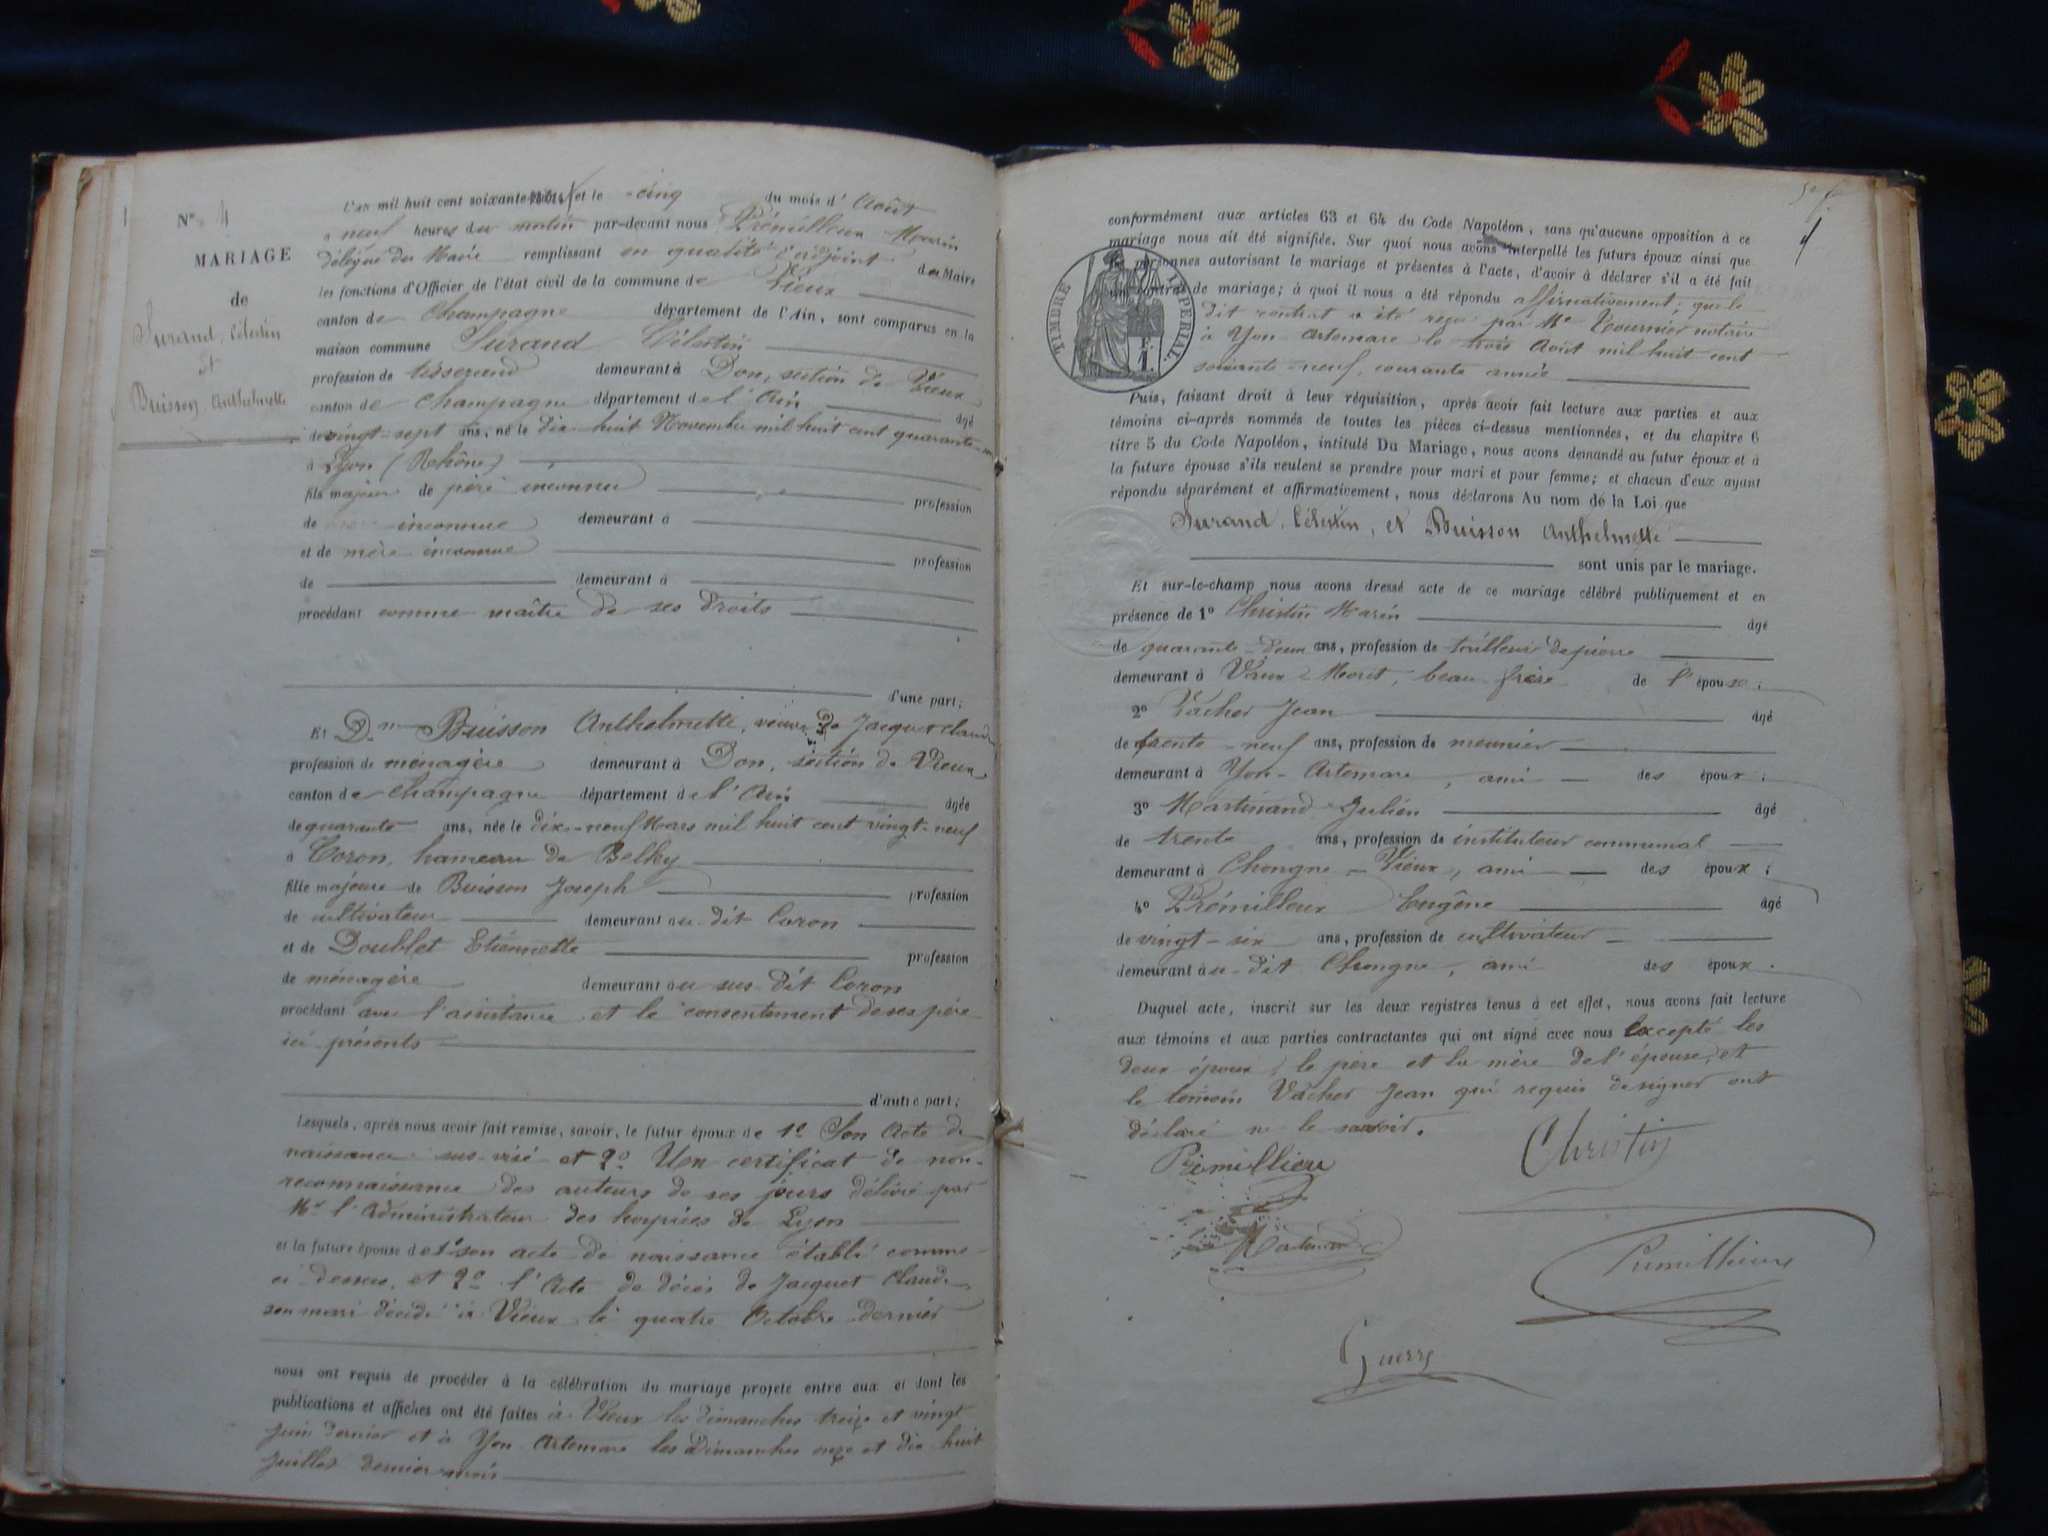 Nº 4
MARIAGE
de
Surand, Célestin
et
Buisson Anthelmette
L'an mil huit cent soixante et le cinq du mois d'Août
à neuf heures du matin par-devant nous Prémillieux Marin
délégué du Maire remplissant en qualité d'adjoint du Maire
les fonctions d'Officier de l'état civil de la commune de Vieux
canton de Champagne département de l'Ain, sont comparus en la
maison commune Surand Célestin
profession de tisserand demeurant à Don, section de Vieux
canton de Champagne département de l'Ain âgé
de vingt-sept ans, né le dix-huit Novembre mil huit cent quarante-un
à Lyon (Rhône)
fils majeur de père inconnu profession
de inconnue demeurant à
et de mère inconnue profession
de demeurant à
procédant comme maître de ses droits
d'une part;
Et Dme Buisson Anthelmette, veuve de Jacquet Claude
profession de ménagère demeurant à Don, section de Vieux
canton de Champagne département de l'Ain âgée
de quarante ans, née le dix-neuf Mars mil huit cent vingt-neuf
à Coron, hameau de Belley
fille majeure de Buisson Joseph profession
de cultivateur demeurant au dit Coron
et de Doublet Etiennette profession
de ménagère demeurant au sus-dit Coron
procédant avec l'assistance et le consentement de ses père
ici présents
d'autre part;
Lesquels, après nous avoir fait remise, savoir, le futur époux de 1º Son Acte de
naissance sus-visé et 2º Un certificat de non-
reconnaissance des auteurs de ses jours délivré par
Mr l'Administrateur des hospices de Lyon
et la future épouse de 1º son acte de naissance établi comme
ci-dessus, et 2º l'Acte de décès de Jacquet Claude
son mari décédé à Vieux le quatre Octobre dernier
nous ont requis de procéder à la célébration du mariage projeté entre eux et dont les
publications et affiches ont été faites à Vieux les dimanches treize et vingt
juin dernier et à Yon-Artemare les Dimanches onze et dix-huit
juillet dernier mois
conformément aux articles 63 et 64 du Code Napoléon, sans qu'aucune opposition à ce
mariage nous ait été signifiée. Sur quoi nous avons interpellé les futurs époux ainsi que
les personnes autorisant le mariage et présentes à l'acte, d'avoir à déclarer s'il a été fait
un contrat de mariage; à quoi il nous a été répondu affirmativement; que le
dit contrat a été reçu par Me Tournier notaire
à Yon Artemare le trois Août mil huit cent
soixante-neuf, courante année
TIMBRE IMPERIAL
F.
1.
Puis, faisant droit à leur réquisition, après avoir fait lecture aux parties et aux
témoins ci-après nommés de toutes les pièces ci-dessus mentionnées, et du chapitre 6
titre 5 du Code Napoléon, intitulé Du Mariage, nous avons demandé au futur époux et à
la future épouse s'ils veulent se prendre pour mari et pour femme; et chacun d'eux ayant
répondu séparément et affirmativement, nous déclarons Au nom de la Loi que
Surand, Célestin, et Buisson Anthelmette
sont unis par le mariage.
Et sur-le-champ nous avons dressé acte de ce mariage célébré publiquement et en
présence de 1º Christin Marin âgé
de quarante-deux ans, profession de tailleur de pierre
demeurant à beau frère de l'épouse;
2º Vacher Jean âgé
de trente-neuf ans, profession de meunier
demeurant à Yon-Artemare, ami des époux;
3º Martinand Julien âgé
de trente ans, profession de instituteur communal
demeurant à Chongne-Vieux, ami des époux;
4º Prémillieux Eugène âgé
de vingt-six ans, profession de cultivateur
demeurant au-dit Chongne, ami des époux.
Duquel acte, inscrit sur les deux registres tenus à cet effet, nous avons fait lecture
aux témoins et aux parties contractantes qui ont signé avec nous excepté les
deux époux, le père et la mère de l'épouse, et
le témoin Vacher Jean qui requis de signer ont
déclaré ne le savoir.
Prémillieu
Christin
Martinand
Prémillieux
Guerre